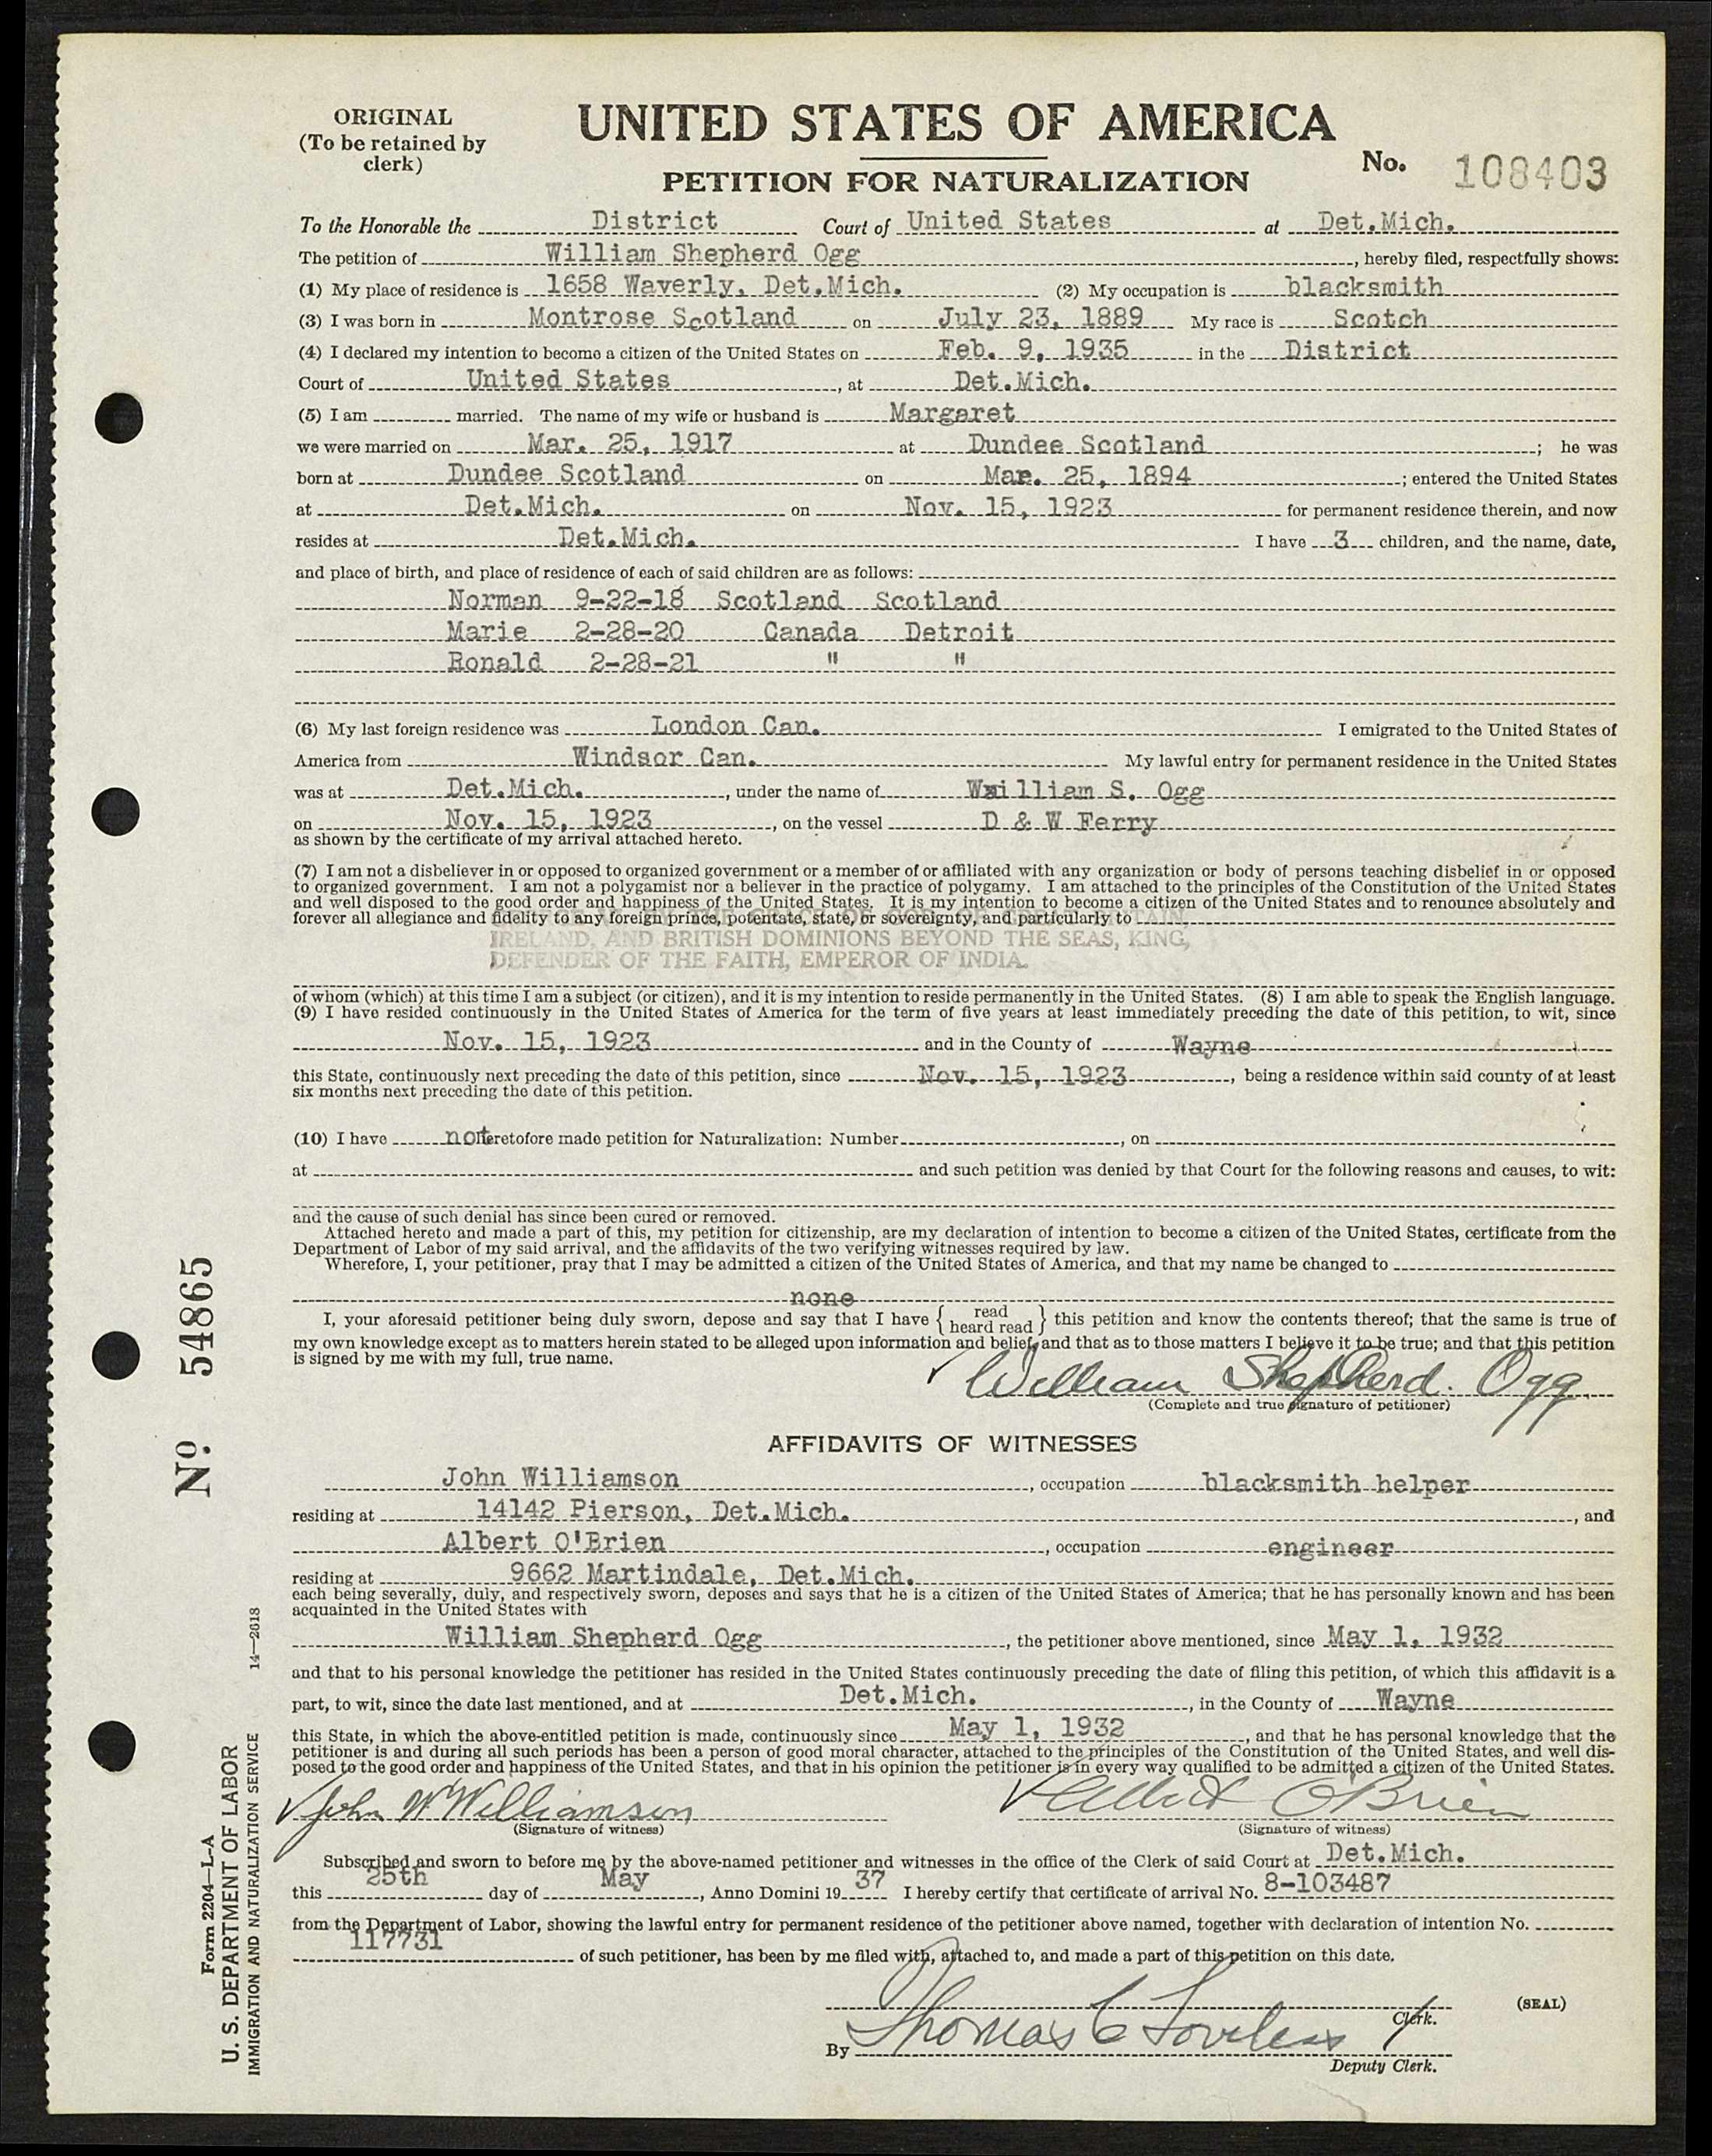 ORIGINAL
(To be retained by
clerk)
UNITED STATES OF AMERICA
PETITION FOR NATURALIZATION
No. 108403
To the Honorable the District Court of United States at Det.Mich.
The petition of William Shepherd Ogg, hereby filed, respectfully shows:
(1) My place of residence is 1658 Waverly, Det.Mich. (2) My occupation is blacksmith
(3) I was born in Montrose Scotland on July 23, 1889 My race is Scotch
(4) I declared my intention to become a citizen of the United States on Feb. 9, 1935 in the District
Court of United States, at Det.Mich.
(5) I am married. The name of my wife or husband is Margaret
we were married on Mar. 25, 1917 at Dundee Scotland; he was
born at Dundee Scotland on Mar. 25, 1894; entered the United States
at Det.Mich. on Nov. 15, 1923 for permanent residence therein, and now
resides at Det.Mich. I have 3 children, and the name, date,
and place of birth, and place of residence of each of said children are as follows:
Norman 9-22-18 Scotland Scotland
Marie 2-28-20 Canada Detroit
Ronald 2-28-21 " "
(6) My last foreign residence was London Can. I emigrated to the United States of
America from Windsor Can. My lawful entry for permanent residence in the United States
was at Det.Mich., under the name of William S. Ogg
on Nov. 15, 1923, on the vessel D & W Ferry
as shown by the certificate of my arrival attached hereto.
(7) I am not a disbeliever in or opposed to organized government or a member of or affiliated with any organization or body of persons teaching disbelief in or opposed
to organized government. I am not a polygamist nor a believer in the practice of polygamy. I am attached to the principles of the Constitution of the United States
and well disposed to the good order and happiness of the United States. It is my intention to become a citizen of the United States and to renounce absolutely and
forever all allegiance and fidelity to any foreign prince, potentate, state, or sovereignty, and particularly to
IRELAND, AND BRITISH DOMINIONS BEYOND THE SEAS, KING,
DEFENDER OF THE FAITH, EMPEROR OF INDIA.
of whom (which) at this time I am a subject (or citizen), and it is my intention to reside permanently in the United States. (8) I am able to speak the English language.
(9) I have resided continuously in the United States of America for the term of five years at least immediately preceding the date of this petition, to wit, since
Nov. 15, 1923 and in the County of Wayne
this State, continuously next preceding the date of this petition, since Nov. 15, 1923, being a residence within said county of at least
six months next preceding the date of this petition.
(10) I have not heretofore made petition for Naturalization: Number, on
at and such petition was denied by that Court for the following reasons and causes, to wit:
and the cause of such denial has since been cured or removed.
Attached hereto and made a part of this, my petition for citizenship, are my declaration of intention to become a citizen of the United States, certificate from the
Department of Labor of my said arrival, and the affidavits of the two verifying witnesses required by law.
Wherefore, I, your petitioner, pray that I may be admitted a citizen of the United States of America, and that my name be changed to
none
I, your aforesaid petitioner being duly sworn, depose and say that I have { read heard read } this petition and know the contents thereof; that the same is true of
my own knowledge except as to matters herein stated to be alleged upon information and belief, and that as to those matters I believe it to be true; and that this petition
is signed by me with my full, true name.
William Shepherd. Ogg.
(Complete and true signature of petitioner)
AFFIDAVITS OF WITNESSES
John Williamson, occupation blacksmith helper
residing at 14142 Pierson, Det.Mich., and
Albert O'Brien, occupation engineer
residing at 9662 Martindale, Det.Mich.
each being severally, duly, and respectively sworn, deposes and says that he is a citizen of the United States of America; that he has personally known and has been
acquainted in the United States with
William Shepherd Ogg, the petitioner above mentioned, since May 1, 1932
and that to his personal knowledge the petitioner has resided in the United States continuously preceding the date of filing this petition, of which this affidavit is a
part, to wit, since the date last mentioned, and at Det.Mich., in the County of Wayne
this State, in which the above-entitled petition is made, continuously since May 1, 1932, and that he has personal knowledge that the
petitioner is and during all such periods has been a person of good moral character, attached to the principles of the Constitution of the United States, and well dis-
posed to the good order and happiness of the United States, and that in his opinion the petitioner is in every way qualified to be admitted a citizen of the United States.
John W Williamson Albert O'Brien
(Signature of witness) (Signature of witness)
Subscribed and sworn to before me by the above-named petitioner and witnesses in the office of the Clerk of said Court at Det.Mich.
this 25th day of May, Anno Domini 1937 I hereby certify that certificate of arrival No. 8-103487
from the Department of Labor, showing the lawful entry for permanent residence of the petitioner above named, together with declaration of intention No.
117731 of such petitioner, has been by me filed with, attached to, and made a part of this petition on this date.
Clerk.
(SEAL)
By Thomas C Loveless
Deputy Clerk.
No. 54865
Form 2204—L-A
U. S. DEPARTMENT OF LABOR
IMMIGRATION AND NATURALIZATION SERVICE
14—2618